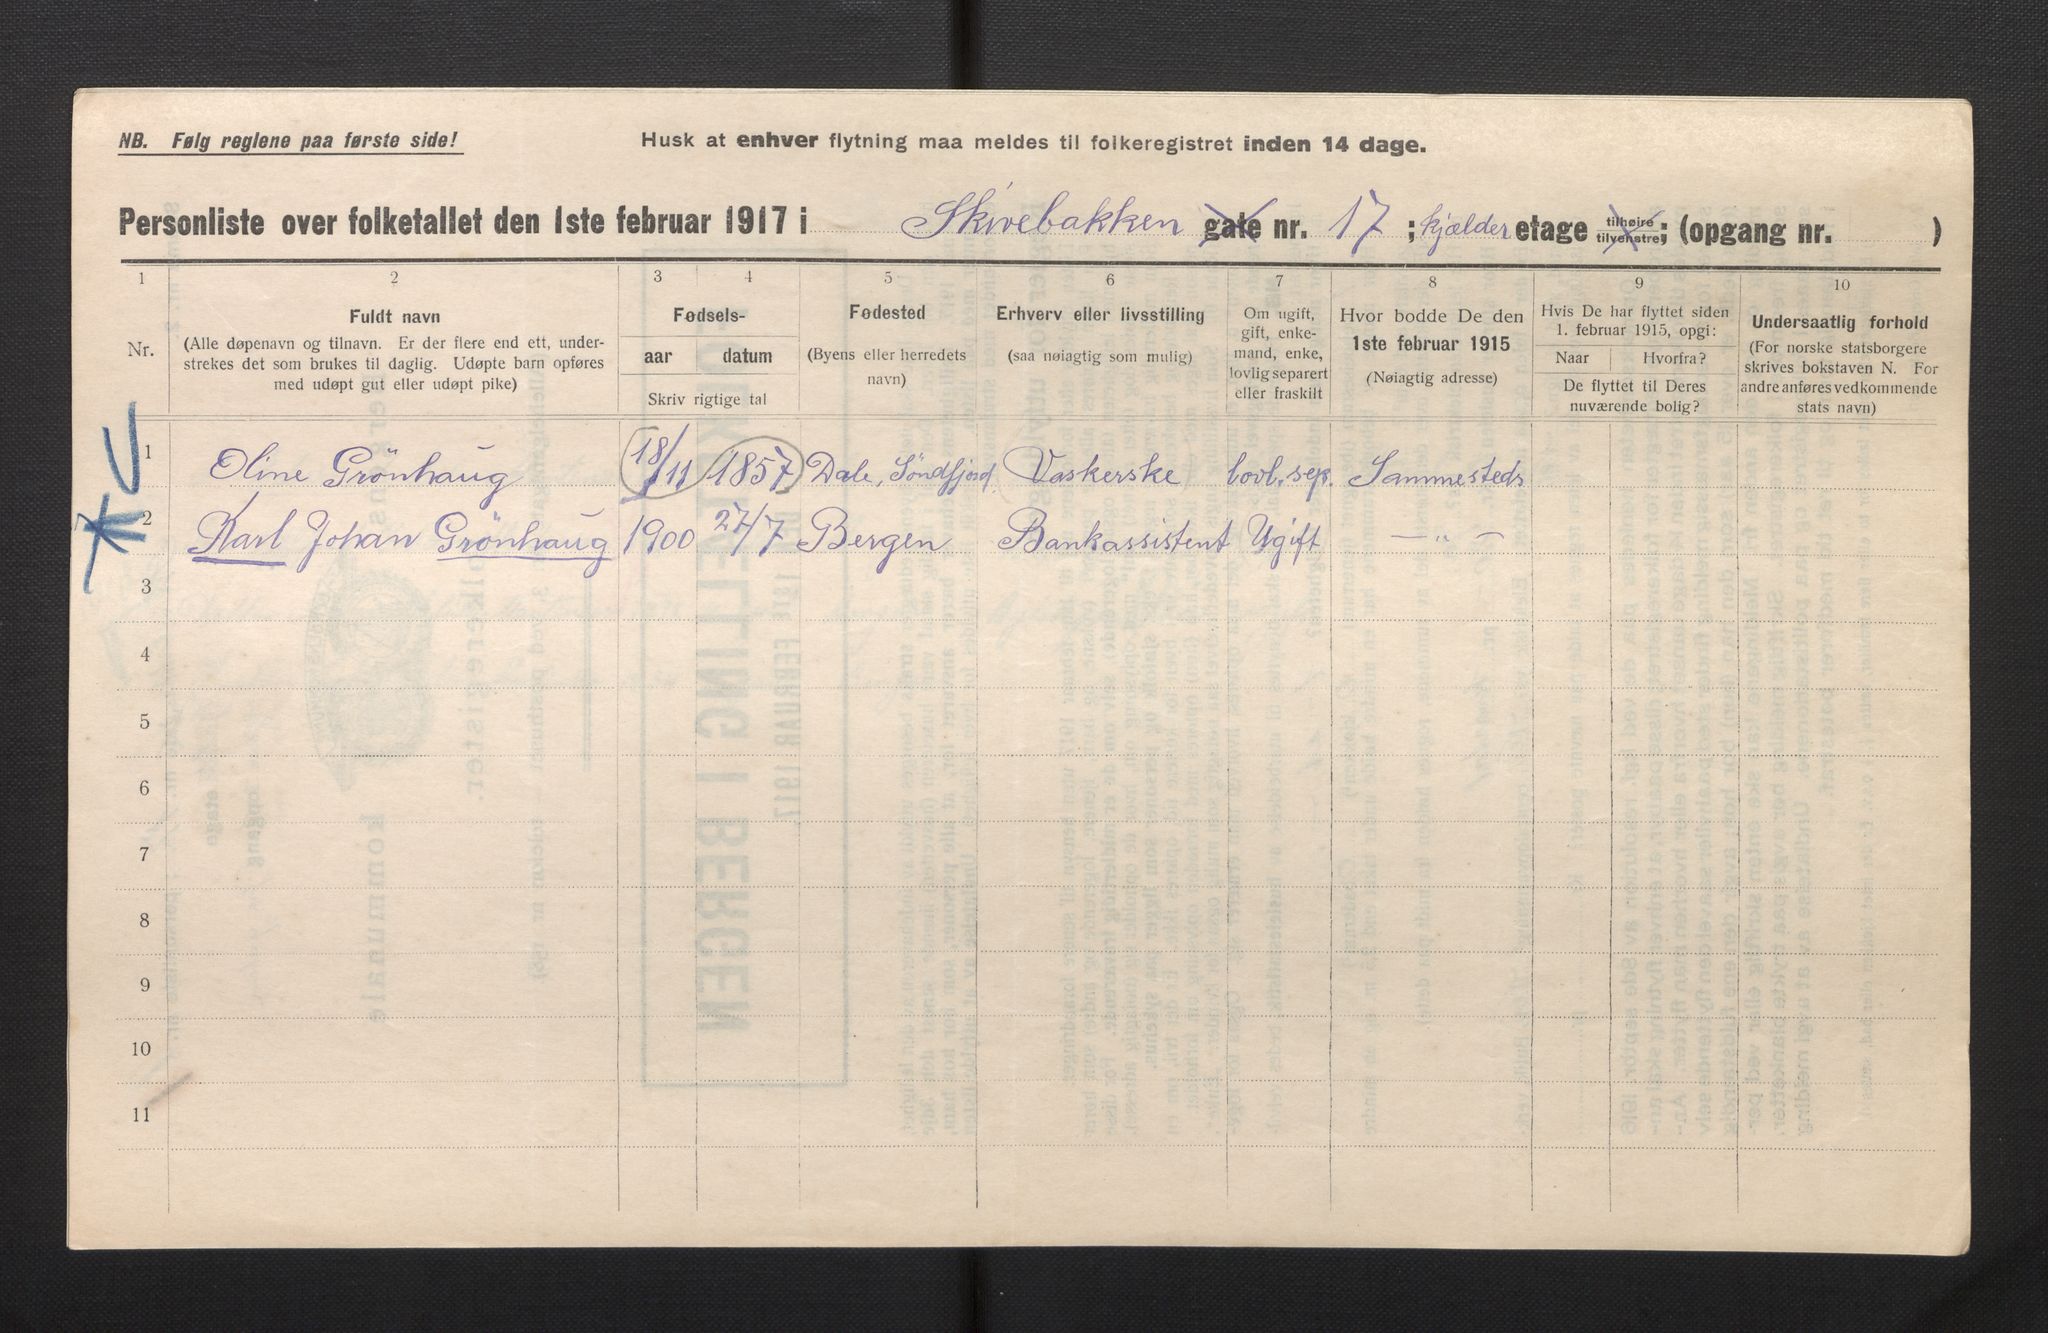 NB. Følg reglene paa første side!
Husk at enhver flytning maa meldes til folkeregistret inden 14 dage.
Personliste over folketallet den 1ste februar 1917 i Skivebakken gate nr. 17 ; kjælder etage tilhøire tilvenstre; (opgang nr. )
1 2 3 4 5 6 7 8 9 10
Nr.
Fuldt navn
(Alle døpenavn og tilnavn. Er der flere end ett, under-
strekes det som brukes til daglig. Udøpte barn opføres
med udøpt gut eller udøpt pike)
Fødsels-
aar datum
Skriv rigtige tal
Fødested
(Byens eller herredets
navn)
Erhverv eller livsstilling
(saa nøiagtig som mulig)
Om ugift,
gift, enke-
mand, enke,
lovlig separert
eller fraskilt
Hvor bodde De den
1ste februar 1915
(Nøiagtig adresse)
Hvis De har flyttet siden
1. februar 1915, opgi:
Naar Hvorfra?
De flyttet til Deres
nuværende bolig?
Undersaatlig forhold
(For norske statsborgere
skrives bokstaven N. For
andre anføres vedkommende
stats navn)
1 Oline Grönhaug 18/11 1857 Dale, Söndfjord Vaskerske lovl. sep. Sammesteds
2 Karl Johan Grönhaug 1900 27/7 Bergen Bankassistent Ugift — „ —
3
4
5
6
7
8
9
10
11